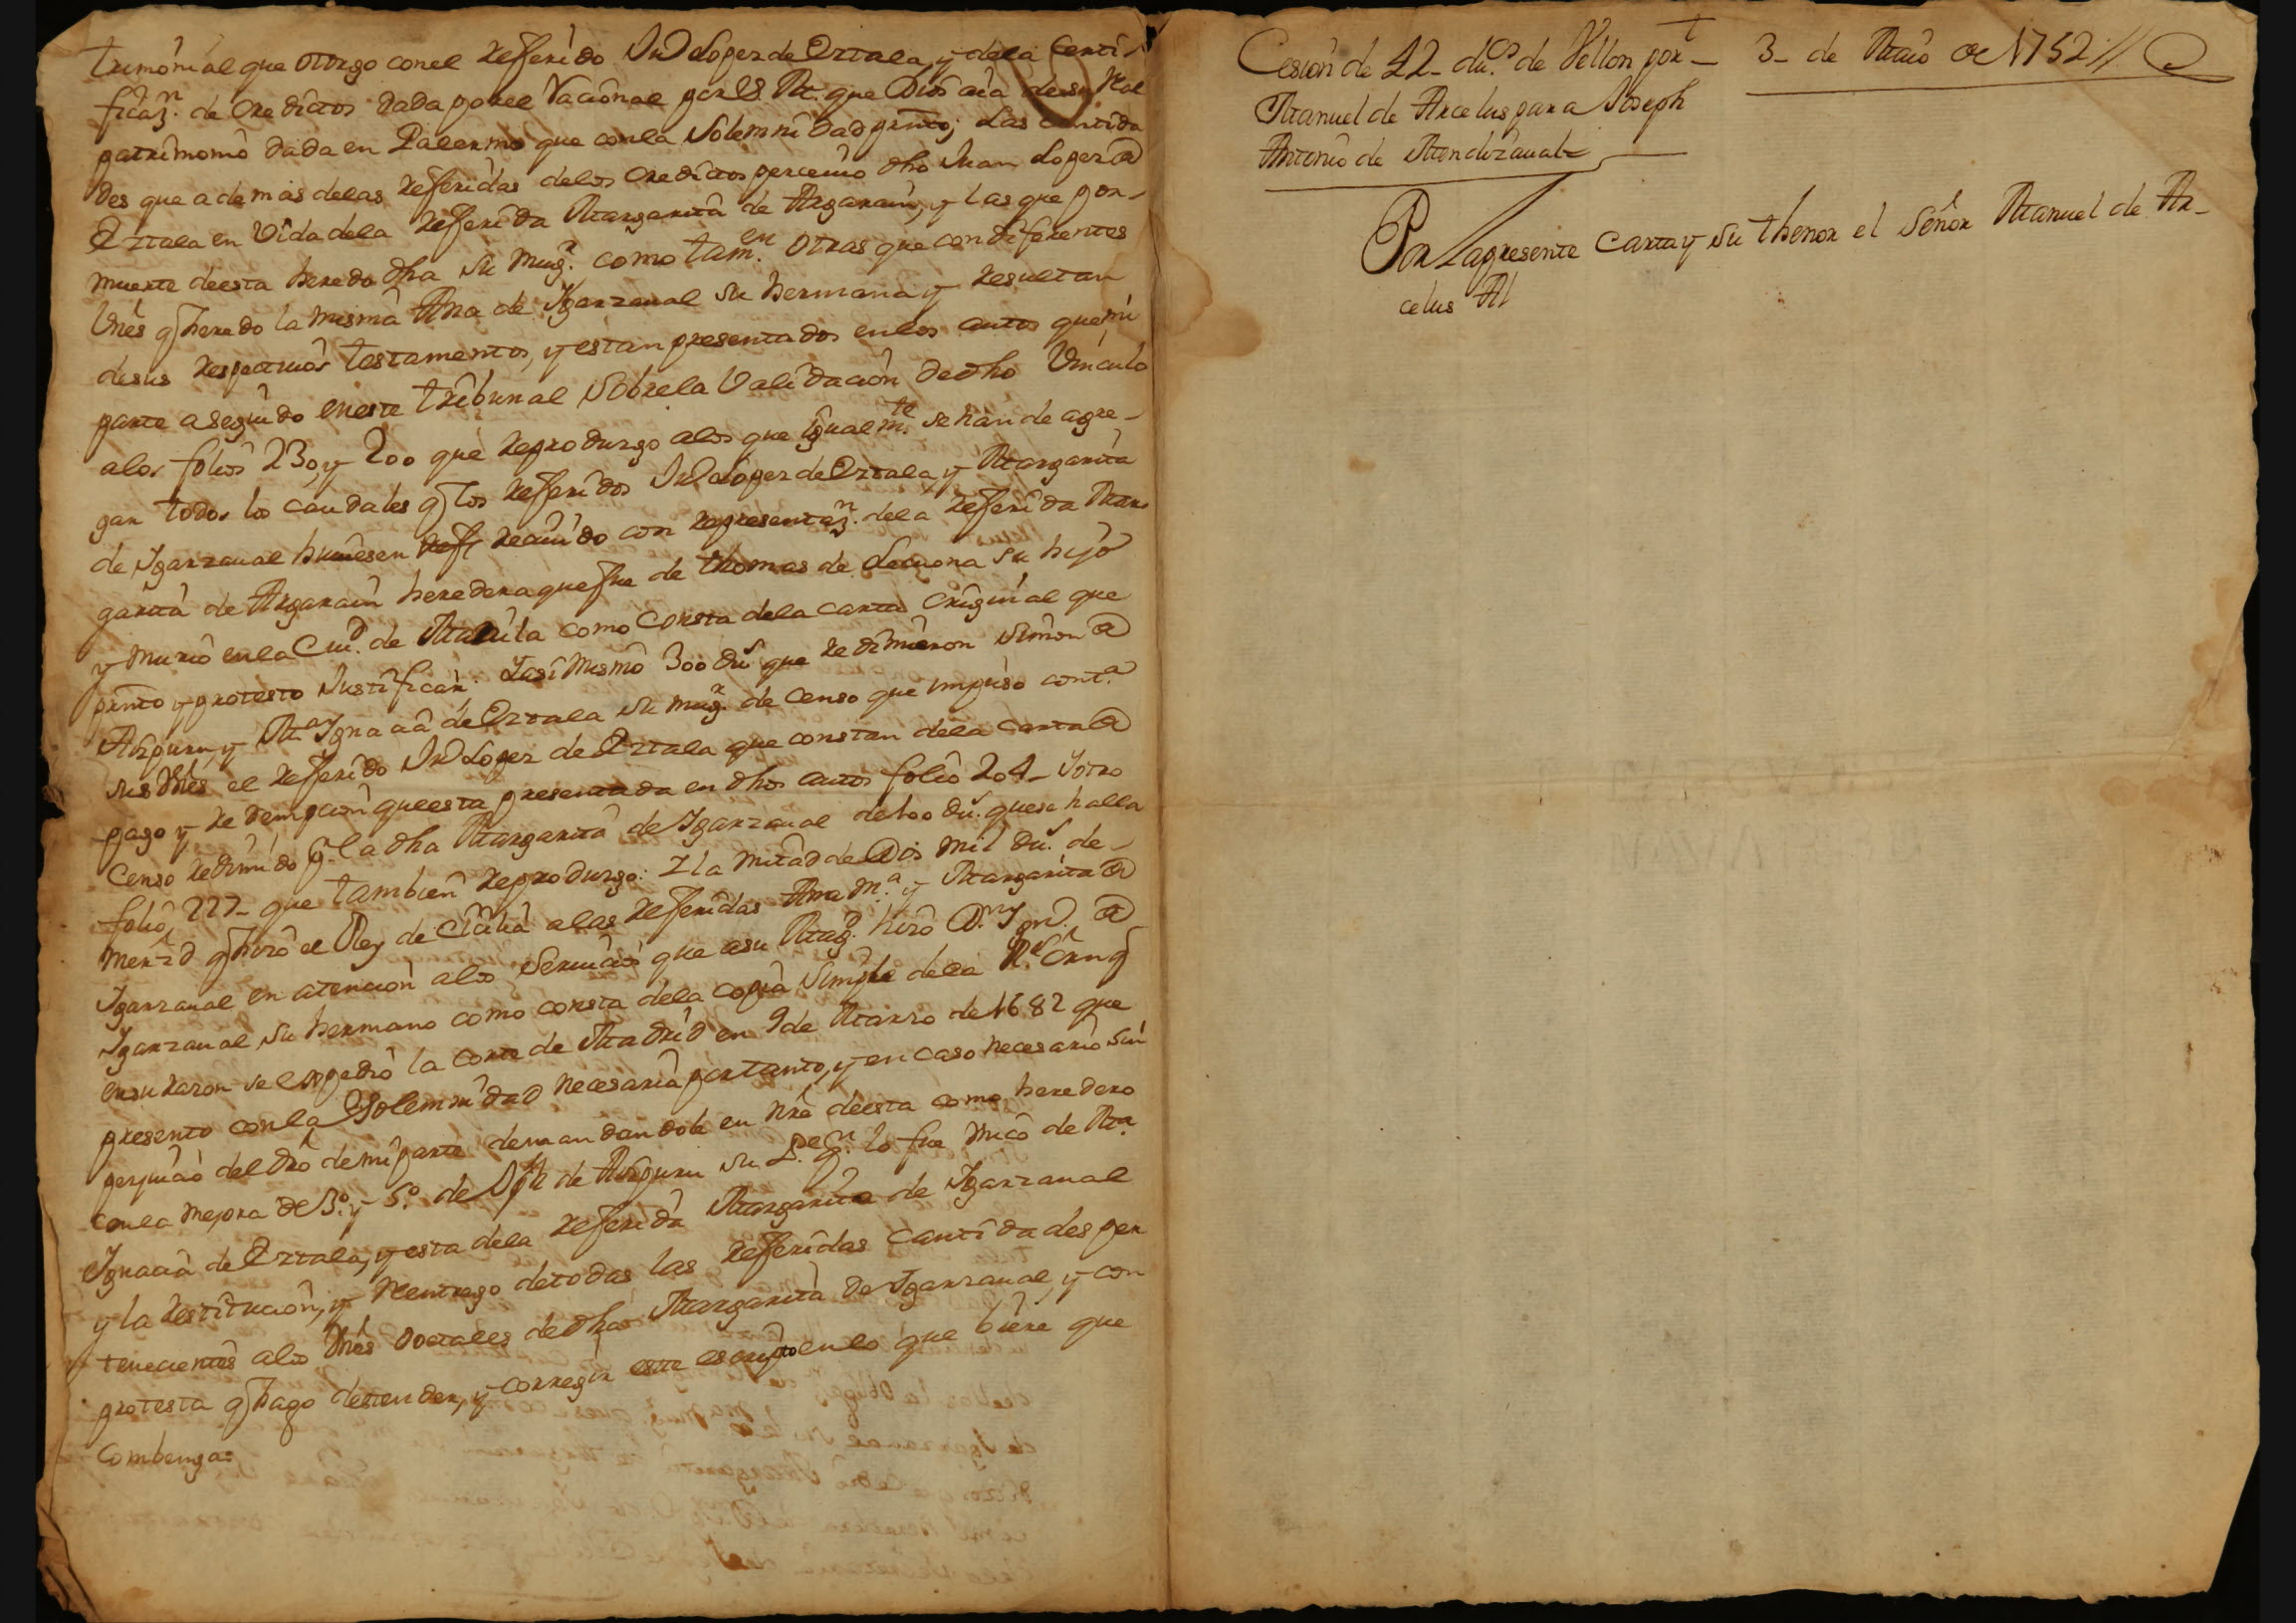 trimonial que otorgo con el refferido Jn Lopez de Oztala, y dela certi-
ficaz.n de creditos dada por el Racional por S. M. que Dios aia de su Real
patrimonio dada en Palermo que con la solemnidad pnto; Las cantida
des que ademas delas refferidas delos creditos perceuio dho Juan Lopez de
Oztala en vida dela refferida Margarita de Argarain, y las que por-
muerte deesta heredo dha su mug.r como tam.en otras que con diferentes
vnes q heredo la misma Ana de Yganzaual su hermana y resultan
desus respectiuos testamentos, y estan presentados enlos autos que mi
parte a seguido eneste tribunal sobrela validacion de dho vinculo
alos folios 230, y 200 que reproduzgo alos que igualm.te se han de agre-
gar todos los caudales q los refferidos Jn Lopez de Oztala, y Margarita
de Yganzaual huuiesen reciuido con representaz.n dela refferida Mar-
garita de Argarain heredera que fue de thomas de Lecuona su hijo
y murio enla Ciu.d de Manila como consta dela carta original que
pnto y protesto Justificar. Y asi mismo 300 dus que redimieron Simon de
Aizpuru, y M.a Ygnacia de Oztala su mug.r de censo que impuso cont.a
sus vnes el refferido Jn Lopez de Oztala que constan dela carta de
pago y redempcion que esta presentada en dhos autos folio 204- Y otro
censo redimido p.r la dha Margarita de Yganzaual de 100 du.s que se halla
folio 227- que tambien reproduzgo: Y la mitad de Dos mil du.s de-
merzd q hizo el Rey de Cicilia alas refferidas Ana M.a y Margarita de
Yganzaual en atencion alos seruicios que asu Mag.d hizo D.n Jph. de
Yganzaual su hermano como consta dela copia simple dela R.l Orn q
ensu razon se expedio la corte de Madrid en 9 de Marzo de 1682 que
presento con la Solemnidad necesaria por tanto, y en caso necesario sin
perjuicio del dro de mi parte demandandole en nre deesta como heredero
con la mejora de 3.o y 5.o de Jph de Aizpuru su P.e q.n lo fue vnico de M.a
Ygnacia de Oztala, y esta dela refferida Margarita de Yganzaual
y la restitucion, y Reentrego detodas las refferidas cantidades per
tenecientes alos vnes dotales de dha Margarita de Yganzaual, y con
protesta q hago destender, y corregir este escripto enlo que biere que
combenga=
Cesion de 42- du.s de Vellon por-
Manuel de Arcelus para Joseph
Antonio de Mendizaual=
3- de Maio de 1752//
Por la presente carta y su thenor el Señor Manuel de Ar-
celus Al